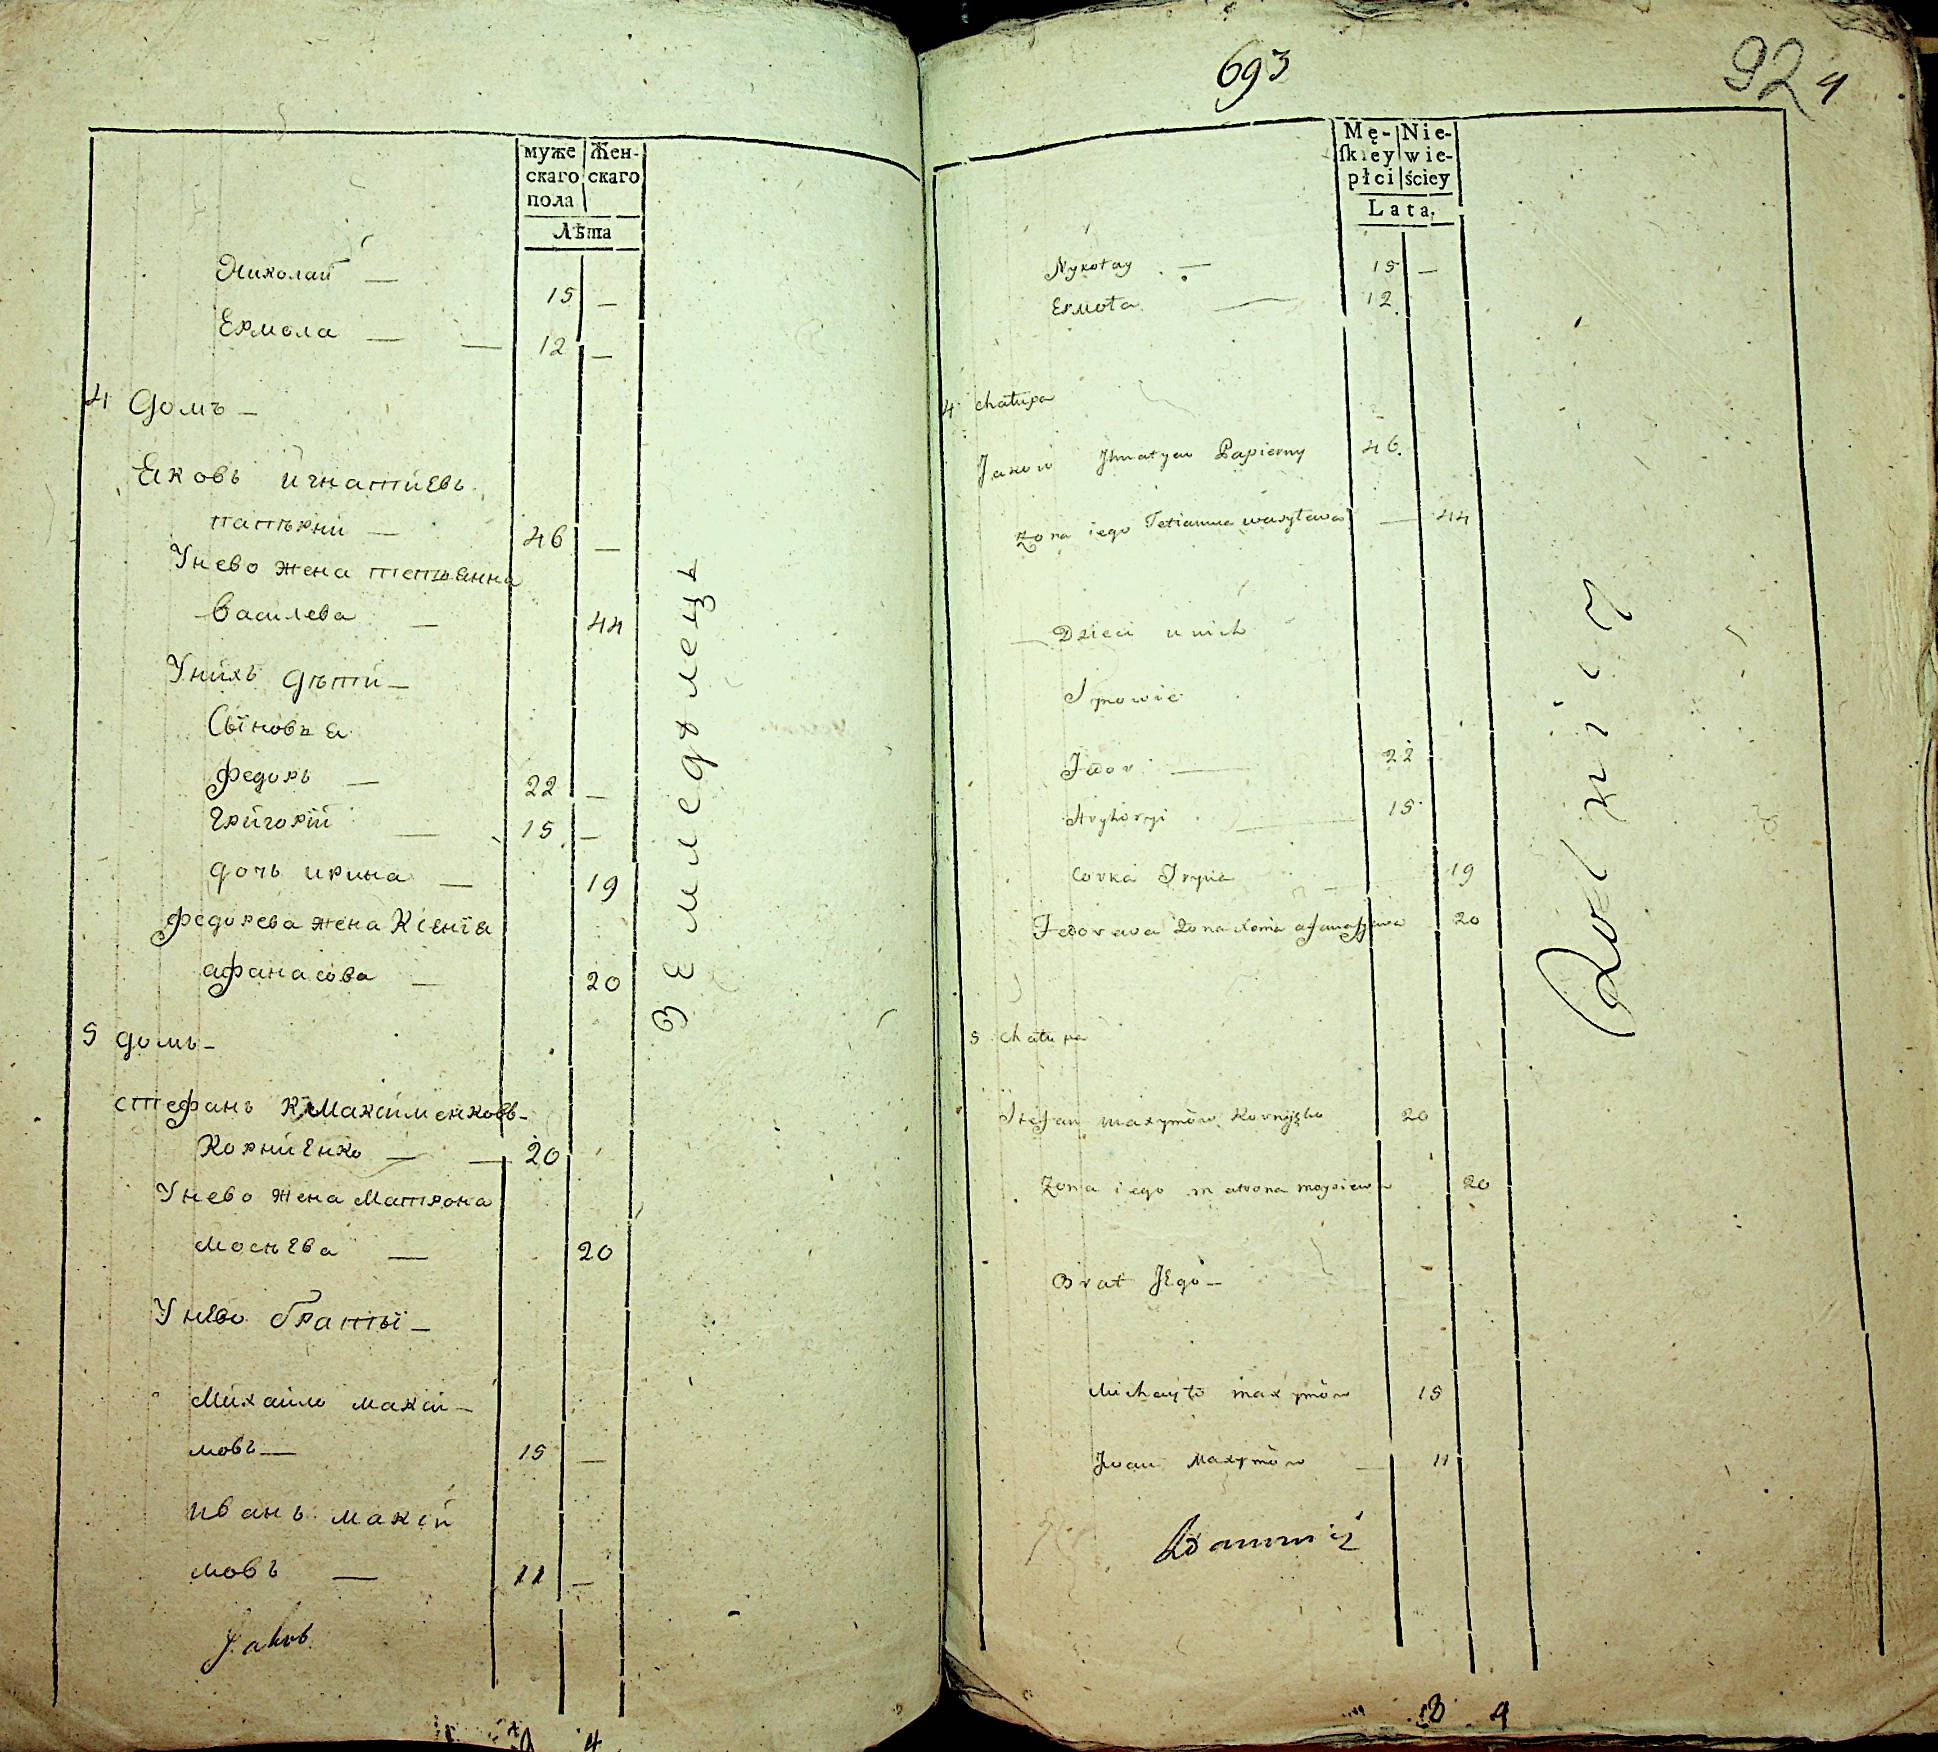 муже скаго пола
Жен- скаго
Лѣта
Николай — 15 —
Ермола — — 12 —
4 Домъ —
Ековъ игнатиевъ
папѣрни — 46 —
Унево жена тетьянна
Василева — 44
Унихъ дѣти —
Сыновъя
Федоръ — 22 —
Григорий — 15 —
дочь ирина — 19
федорева жена Ксения
афанасова — 20
5 домъ —
стефанъ Максименковъ —
Корниенко — — 20
Унево жена Матрона
мосѣева — 20
Унево браты —
Михайло макси —
мовъ — 15 —
иванъ макси
мовъ — 11 —
Jakob
Земледелецъ
693
92 4
Mę- ſkiey płci
Nie- wie- ściey
Lata.
Nykołay — 15 —
Ермоła — 12
4 chałupa
Jakow Ihnatyew Papierny 46.
żona iego Tetianna wasylewa — 44
Dzieci u nich
Synowie
Fedor — 22
Hryhoryi — 15
Corka Iryna — 19
Fedorowa żona Xenia afanasjewa 20
5 chałupa
Stefan maxymów Korniyęko 20
żona iego matrona moysiewa 20
Brat Jego —
Michayło maxymów 15
Jwan Maxymów — 11
Adamowicz
Rolnicy
4
9